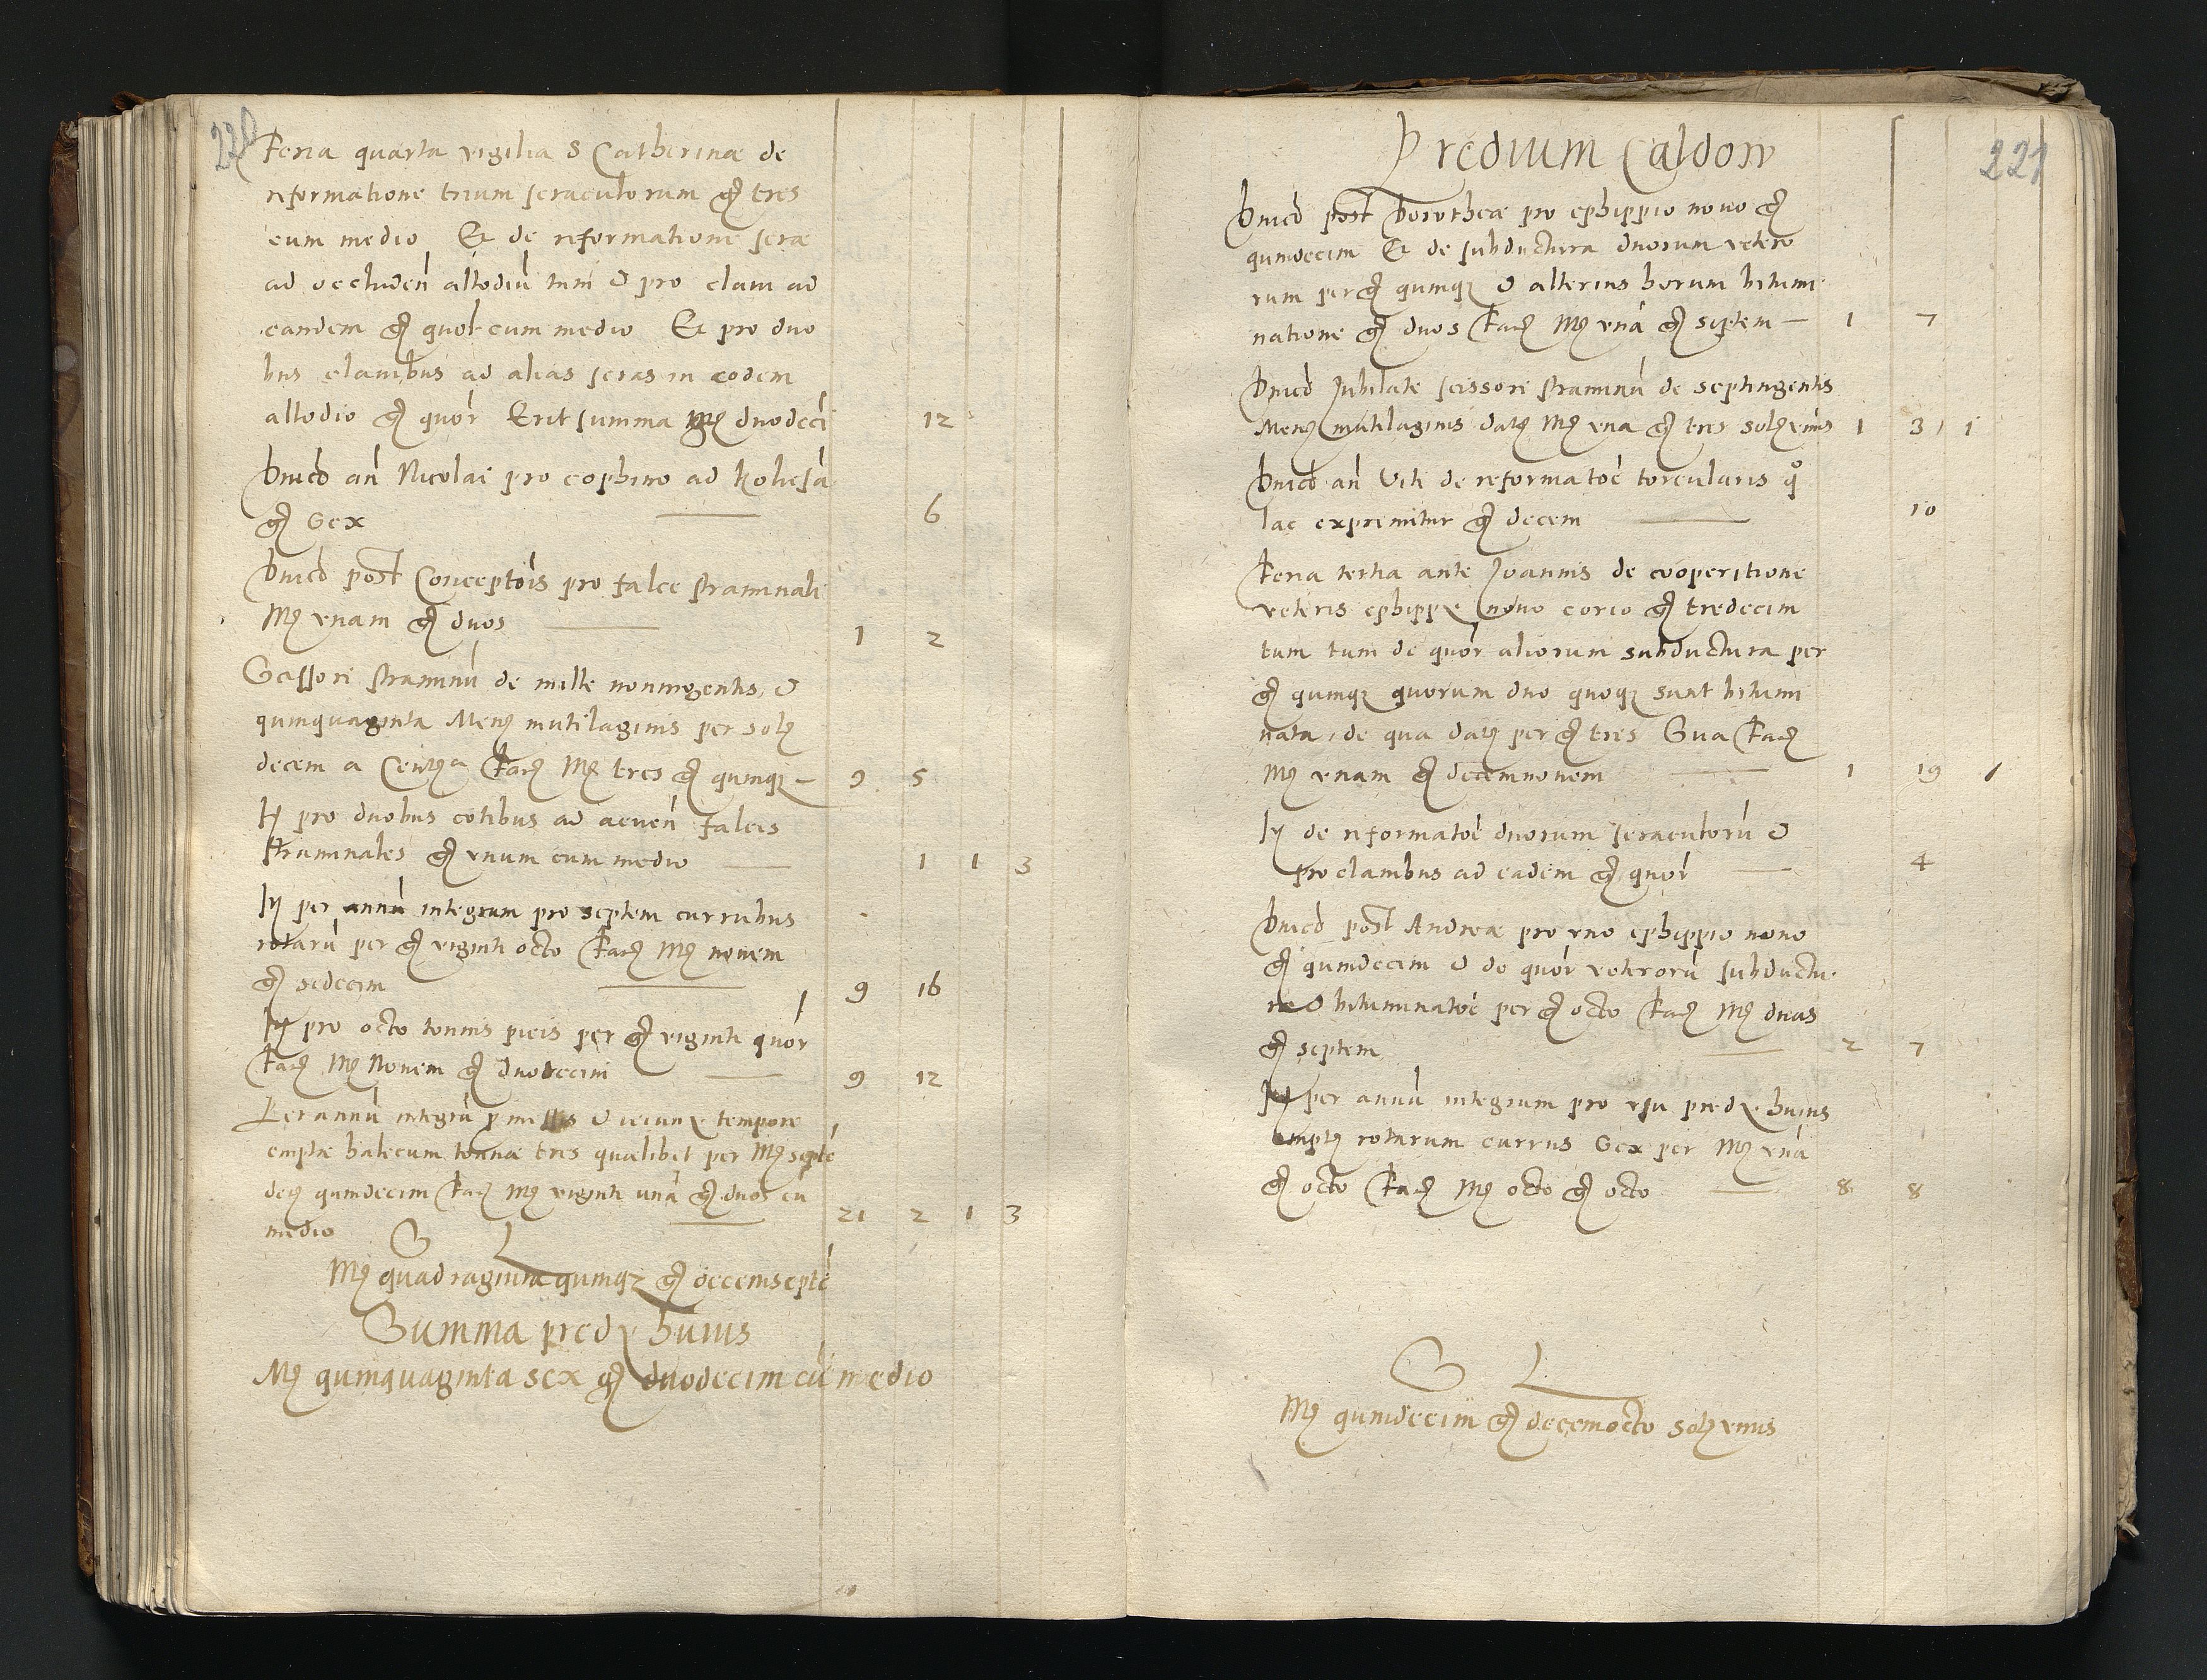 220
Feria quarta vigilia S Catherinæ de
reformatione trium seraculorum gͬ tres
cum medio Et de reformatione seræ
ad occludeń allodiū tum & pro claui ad
eandem gͬ quor cum medio Et pro duo
bus clauibus ad alias seras in eodem
allodio gͬ quor Erit summa gͬ duodeci 12
Dnico añ Nicolai pro cophino ad Kolieſa
gͬ Sex 6
Dnico post Conceptois pro falce straminali
Mͬ vnam gͬ duos 1 2
Scissori straminū de mille noningentis &
quinquaginta Menͬ mutilaginis per solͬ
decem a Centͬa Facͬ Mͬ tres gͬ quinqꝫ 3 5
Itͬ pro duobus cotibus ad acueñ falces
straminales gͬ vnum cum medio 1 1 3
Itͬ per annū integrum pro septem curribus
rotarū per gͬ viginti octo Facͬ Mͬ nouem
gͬ sedecim 9 16
Itͬ pro octo tonnis picis per gͬ viginti quor
Facͬ Mͬ Nouem gͬ duodecim 9 12
Per annū integrū p & ieiunͬ tempore
emptæ halecum tonnæ tres quælibet per Mͬ septē
deͬ quindecim Facͬ Mͬ viginti unā gͬ duos cū
medio 21 2 1 3
S L
Mͬ quadraginta quinqꝫ gͬ decemseptē
Summa predͬ huius
Mͬ quinquaginta sex gͬ duodecim cū medio
221
Predium Caldow
Dnico post Dorotheæ pro ephippio nouo gͬ
quindecim Et de subductura duorum vetero
rum per gͬ quinqꝫ & alterius horum bitumi
natione gͬ duos Facͬ Mͬ vnā gͬ septem 1 7
Dnico Jubilate scissori straminū de septingentis
Menͬ mutilaginis datͬ Mͬ vna gͬ tres solͬ vnus 1 3 1
Dnico añ Viti de reformatoē torcularis qͦ
lac exprimitur gͬ decem 10
Feria tertia ante Joannis de cooperitione
veteris ephippͬ nouo corio gͬ tredecim
tum tum de quor aliorum subductura per
gͬ quinqꝫ quorum duo quoqꝫ sunt bitumi
nata, de qua datͬ per gͬ tres Sua Facͬ
Mͬ vnam gͬ decemnouem 1 19 /
Itͬ de reformatoē duorum seraculorū &
pro clauibus ad eadem gͬ quor 4
Dnico post Andreæ pro vno ephippio nouo
gͬ quindecim & de quor veterorū subductu
re & bituminatoē per gͬ octo Facͬ Mͬ duas
gͬ septem 2 7
Itͬ per annū integrum pro vsu predͬ huius
emptͬ rotarum currus Sex per Mͬ vnā
gͬ octo Facͬ Mͬ octo gͬ octo 8 8
S L
Mͬ quindecim gͬ decemocto solͬ vnus